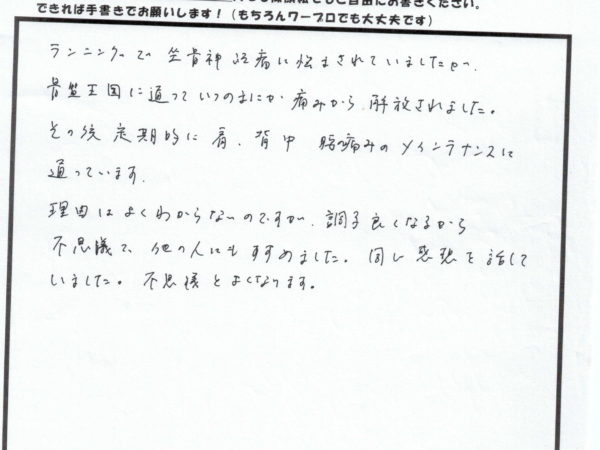 できれば手書きでお願いします！（もちろんワープロでも大丈夫です）
ランニングで坐骨神経痛に悩まされていましたが、
骨盤王国に通っていつのまにか痛みから解放されました。
その後定期的に肩、背中 腰痛みのメインテナンスに
通っています。
理由はよくわからないのですが、調子良くなるから
不思議で、他の人にもすすめました。同じ感想を話して
いました。不思議とよくなります。